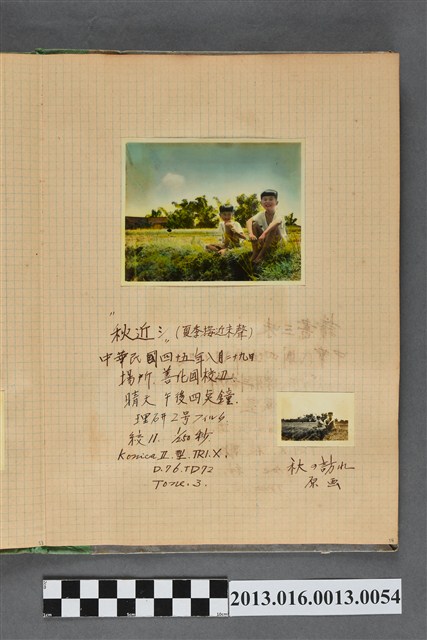 "秋近シ" (夏季接近末聲)
中華民國四十五年八月二十九日
場所. 善化國校辺.
晴天 午後四点鐘.
理研2号フィルタ
絞11. 1/250秒
Konica II.型. TRI.X.
D.76. TD72
Tone. 3.
秋の訪れ
原画
2013.016.0013.0054